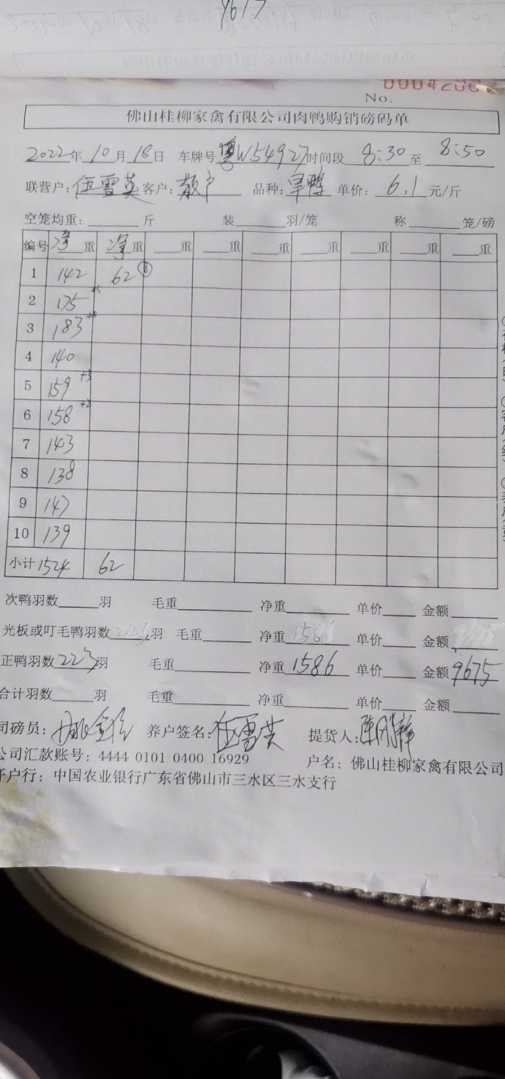 9617
No.
佛山桂柳家禽有限公司肉鸭购销磅码单
2022年10月18日 车牌号粤W54927时间段 8:30至 8:50
联营户:伍雪英客户:散户 品种:旱鸭 单价: 6.1元/斤
空笼均重: 斤 装 羽/笼 称 笼/磅
编号 净重 净重 重 重 重 重 重 重 重
1 142 62 ①
2 175
3 183
4 140
5 159 +3
6 158 +2
7 143
8 138
9 147
10 139
小计 1524 62
次鸭羽数 羽 毛重 净重 单价 金额
光板或叮毛鸭羽数 羽 毛重 净重 单价 金额
正鸭羽数223羽 毛重 净重1586 单价 金额9675
合计羽数 羽 毛重 净重 单价 金额
司磅员: 养户签名:伍雪英 提货人:
公司汇款账号: 4444 0101 0400 16929 户名: 佛山桂柳家禽有限公司
开户行: 中国农业银行广东省佛山市三水区三水支行